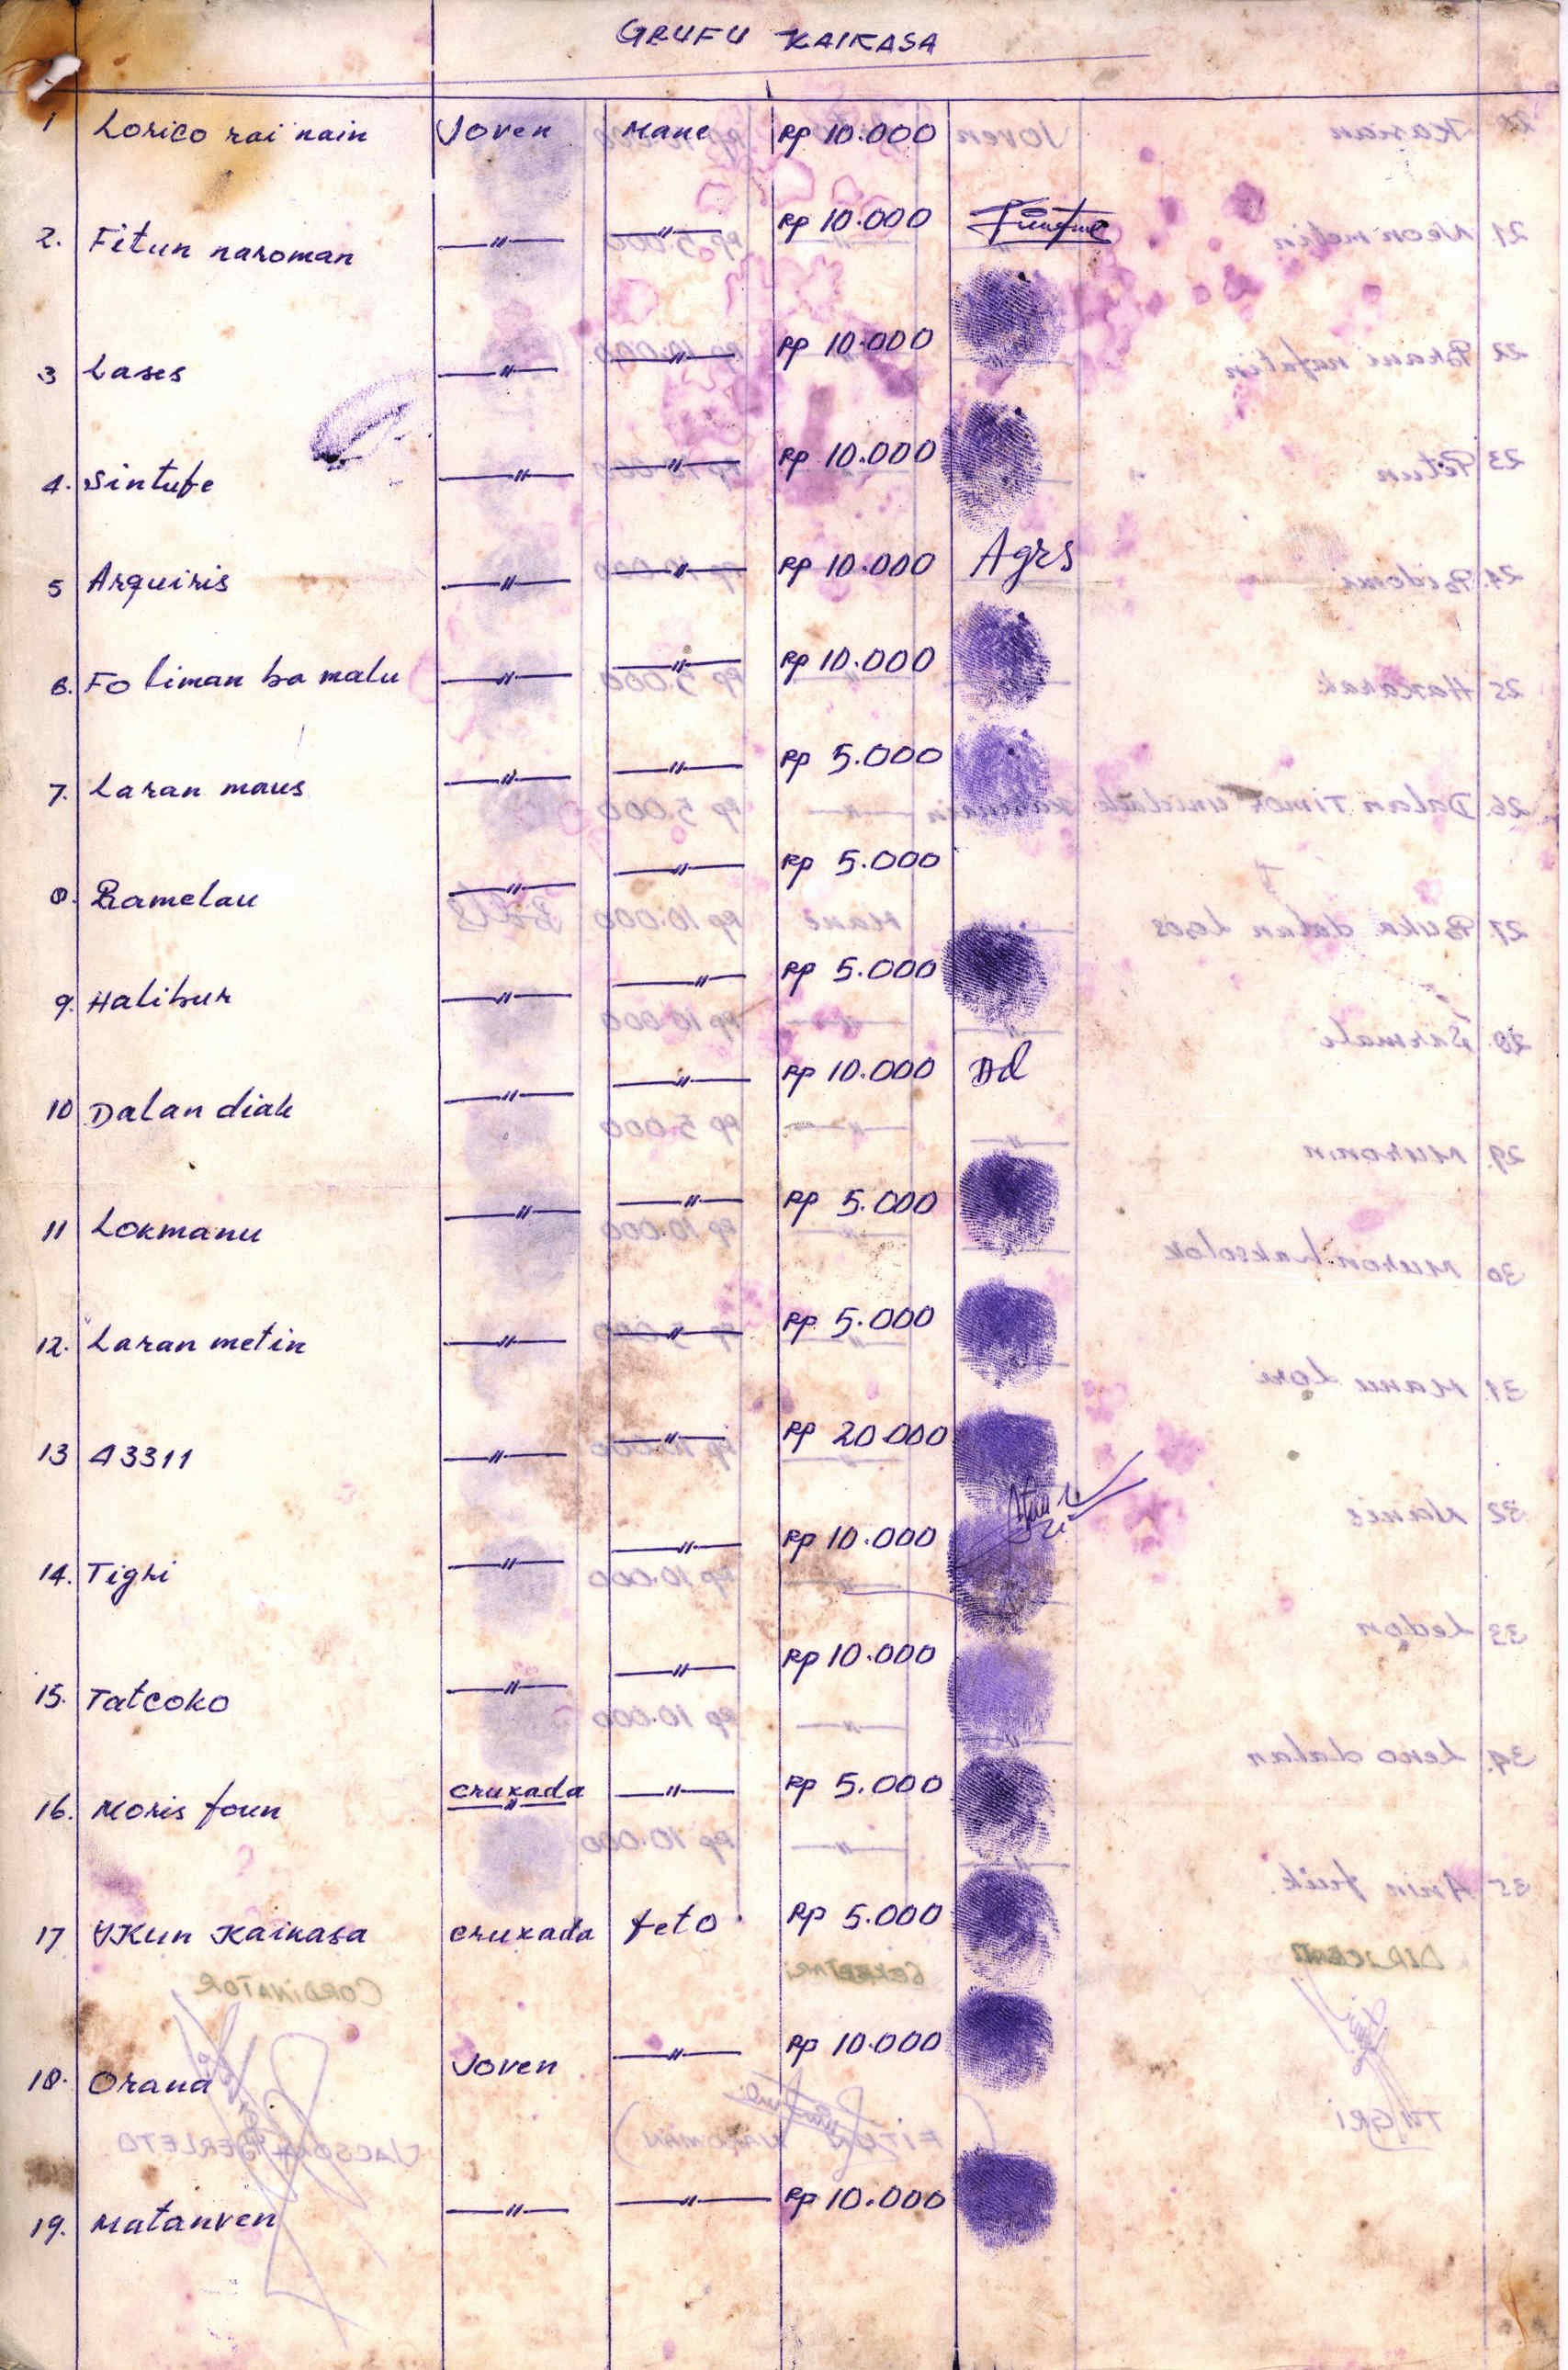 GRUFU KAIKASA
1 Lorico rai nain Joven Mane Rp 10.000
2. Fitun naroman —"— —"— Rp 10.000
3 Lases —"— —"— Rp 10.000
4. Sintufe —"— —"— Rp 10.000
5 Arquiris —"— —"— Rp 10.000 Agrs
6. Fo liman ba malu —"— —"— Rp 10.000
7. Laran maus —"— —"— Rp 5.000
8. Ramelau —"— —"— Rp 5.000
9. Halibur —"— —"— Rp 5.000
10 Dalan diak —"— —"— Rp 10.000 Dd
11 Lokmanu —"— —"— Rp 5.000
12. Laran metin —"— —"— Rp 5.000
13 43311 —"— —"— Rp 20.000
14. Tigri —"— —"— Rp 10.000
15. Tatcoko —"— —"— Rp 10.000
16. Moris foun cruxada —"— —"— Rp 5.000
17 UKun Kaikasa cruxada feto Rp 5.000
18. Orana Joven —"— Rp 10.000
19. Matanven —"— —"— Rp 10.000